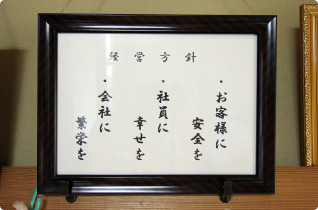 経営方針
・お客様に
安全を
・社員に
幸せを
・会社に
繁栄を